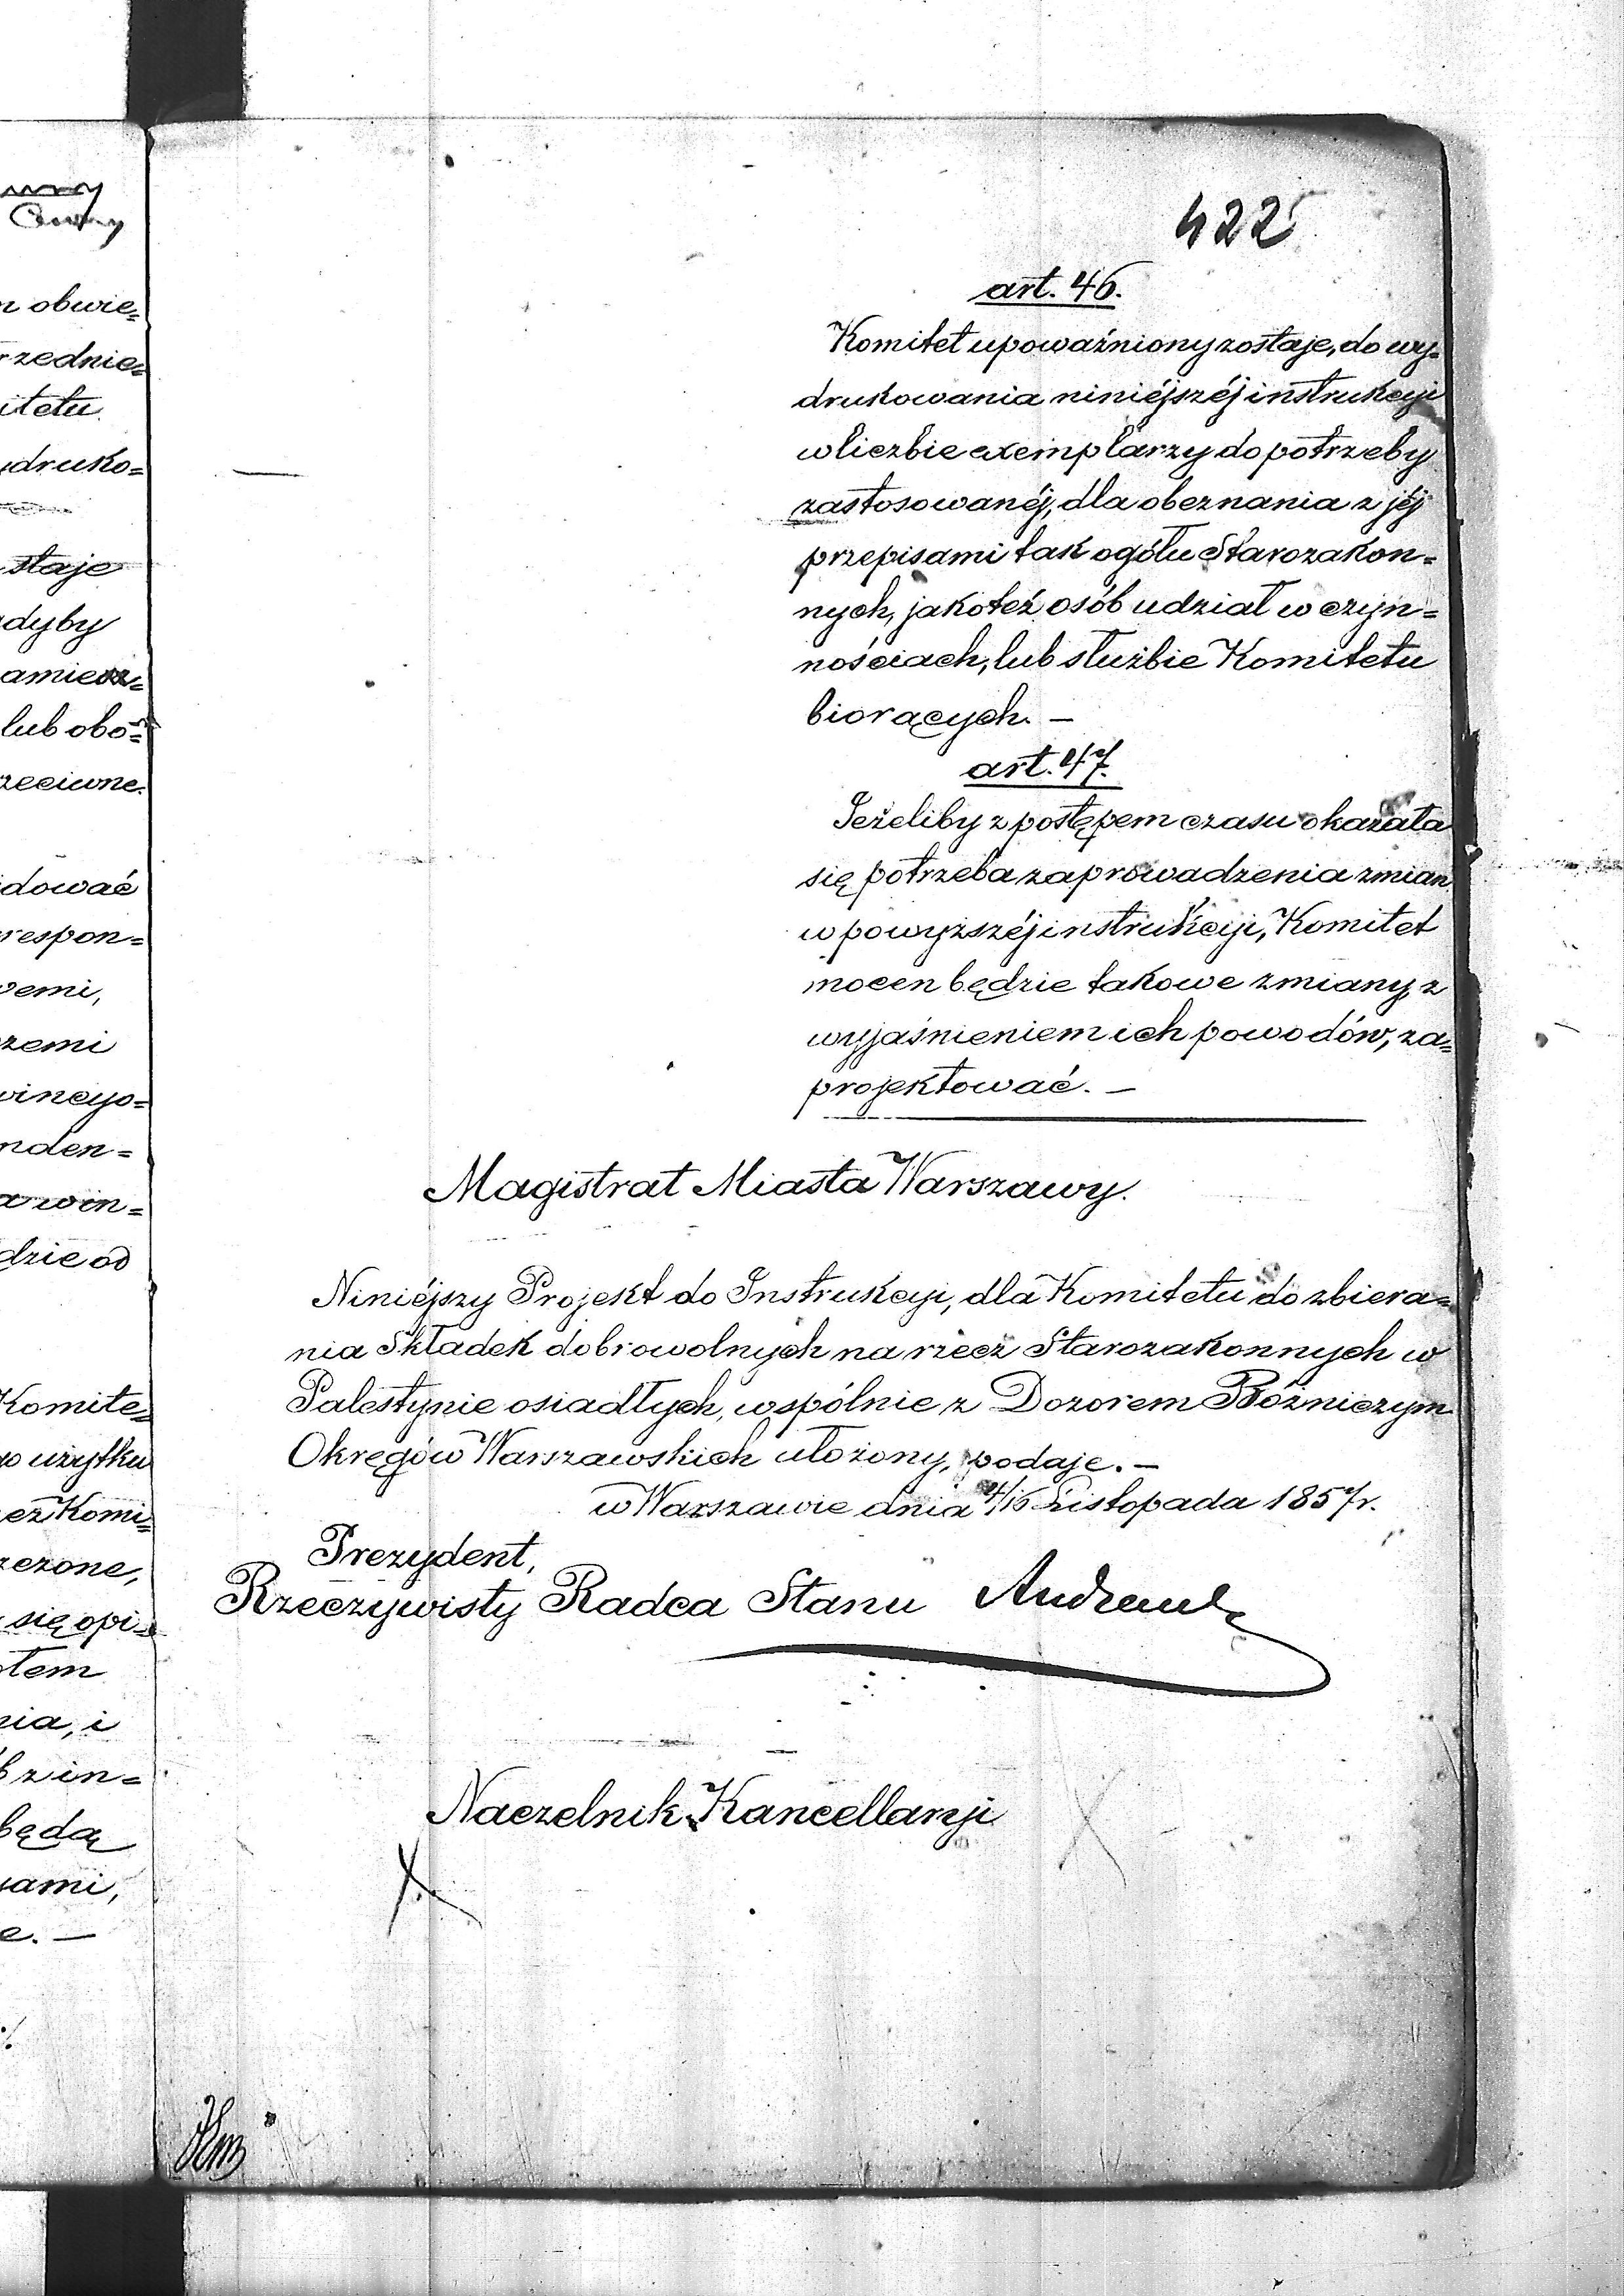 422
art. 46.
Komitet upoważniony zostaje, do wy=
drukowania niniéjszéj instrukcyi
w liczbie exemplarzy do potrzeby
zastosowanéj, dla obeznania z jéj
przepisami tak ogółu Starozakon=
nych, jakoteż osób udział w czyn=
nościach, lub służbie Komitetu
biorących. —
art. 47.
Jeżeliby z postępem czasu okazała
się potrzeba zaprowadzenia zmian
w powyższéj instrukcyi, Komitet
mocen będzie takowe zmiany, z
wyjaśnieniem ich powodów, za=
projektować. —
Magistrat Miasta Warszawy.
Niniéjszy Projekt do Instrukcyi, dla Komitetu do zbiera=
nia Składek dobrowolnych na rzecz Starozakonnych w
Palestynie osiadłych, wspólnie z Dozorem Bóżniczym
Okręgów Warszawskich ułożony, podaje. —
w Warszawie dnia 4/16 Listopada 1857 r.
Prezydent,
Rzeczywisty Radca Stanu
Naczelnik Kancellaryi
n obwie=
rzednie=
itetu.
druko=
staje
dyby
lub obo=
zeciwne.
dować
respon=
zemi
wincyo=
nden=
dzie od
Komite=
użytku
ez Komi=
się opi=
nia, i
będą
e. —